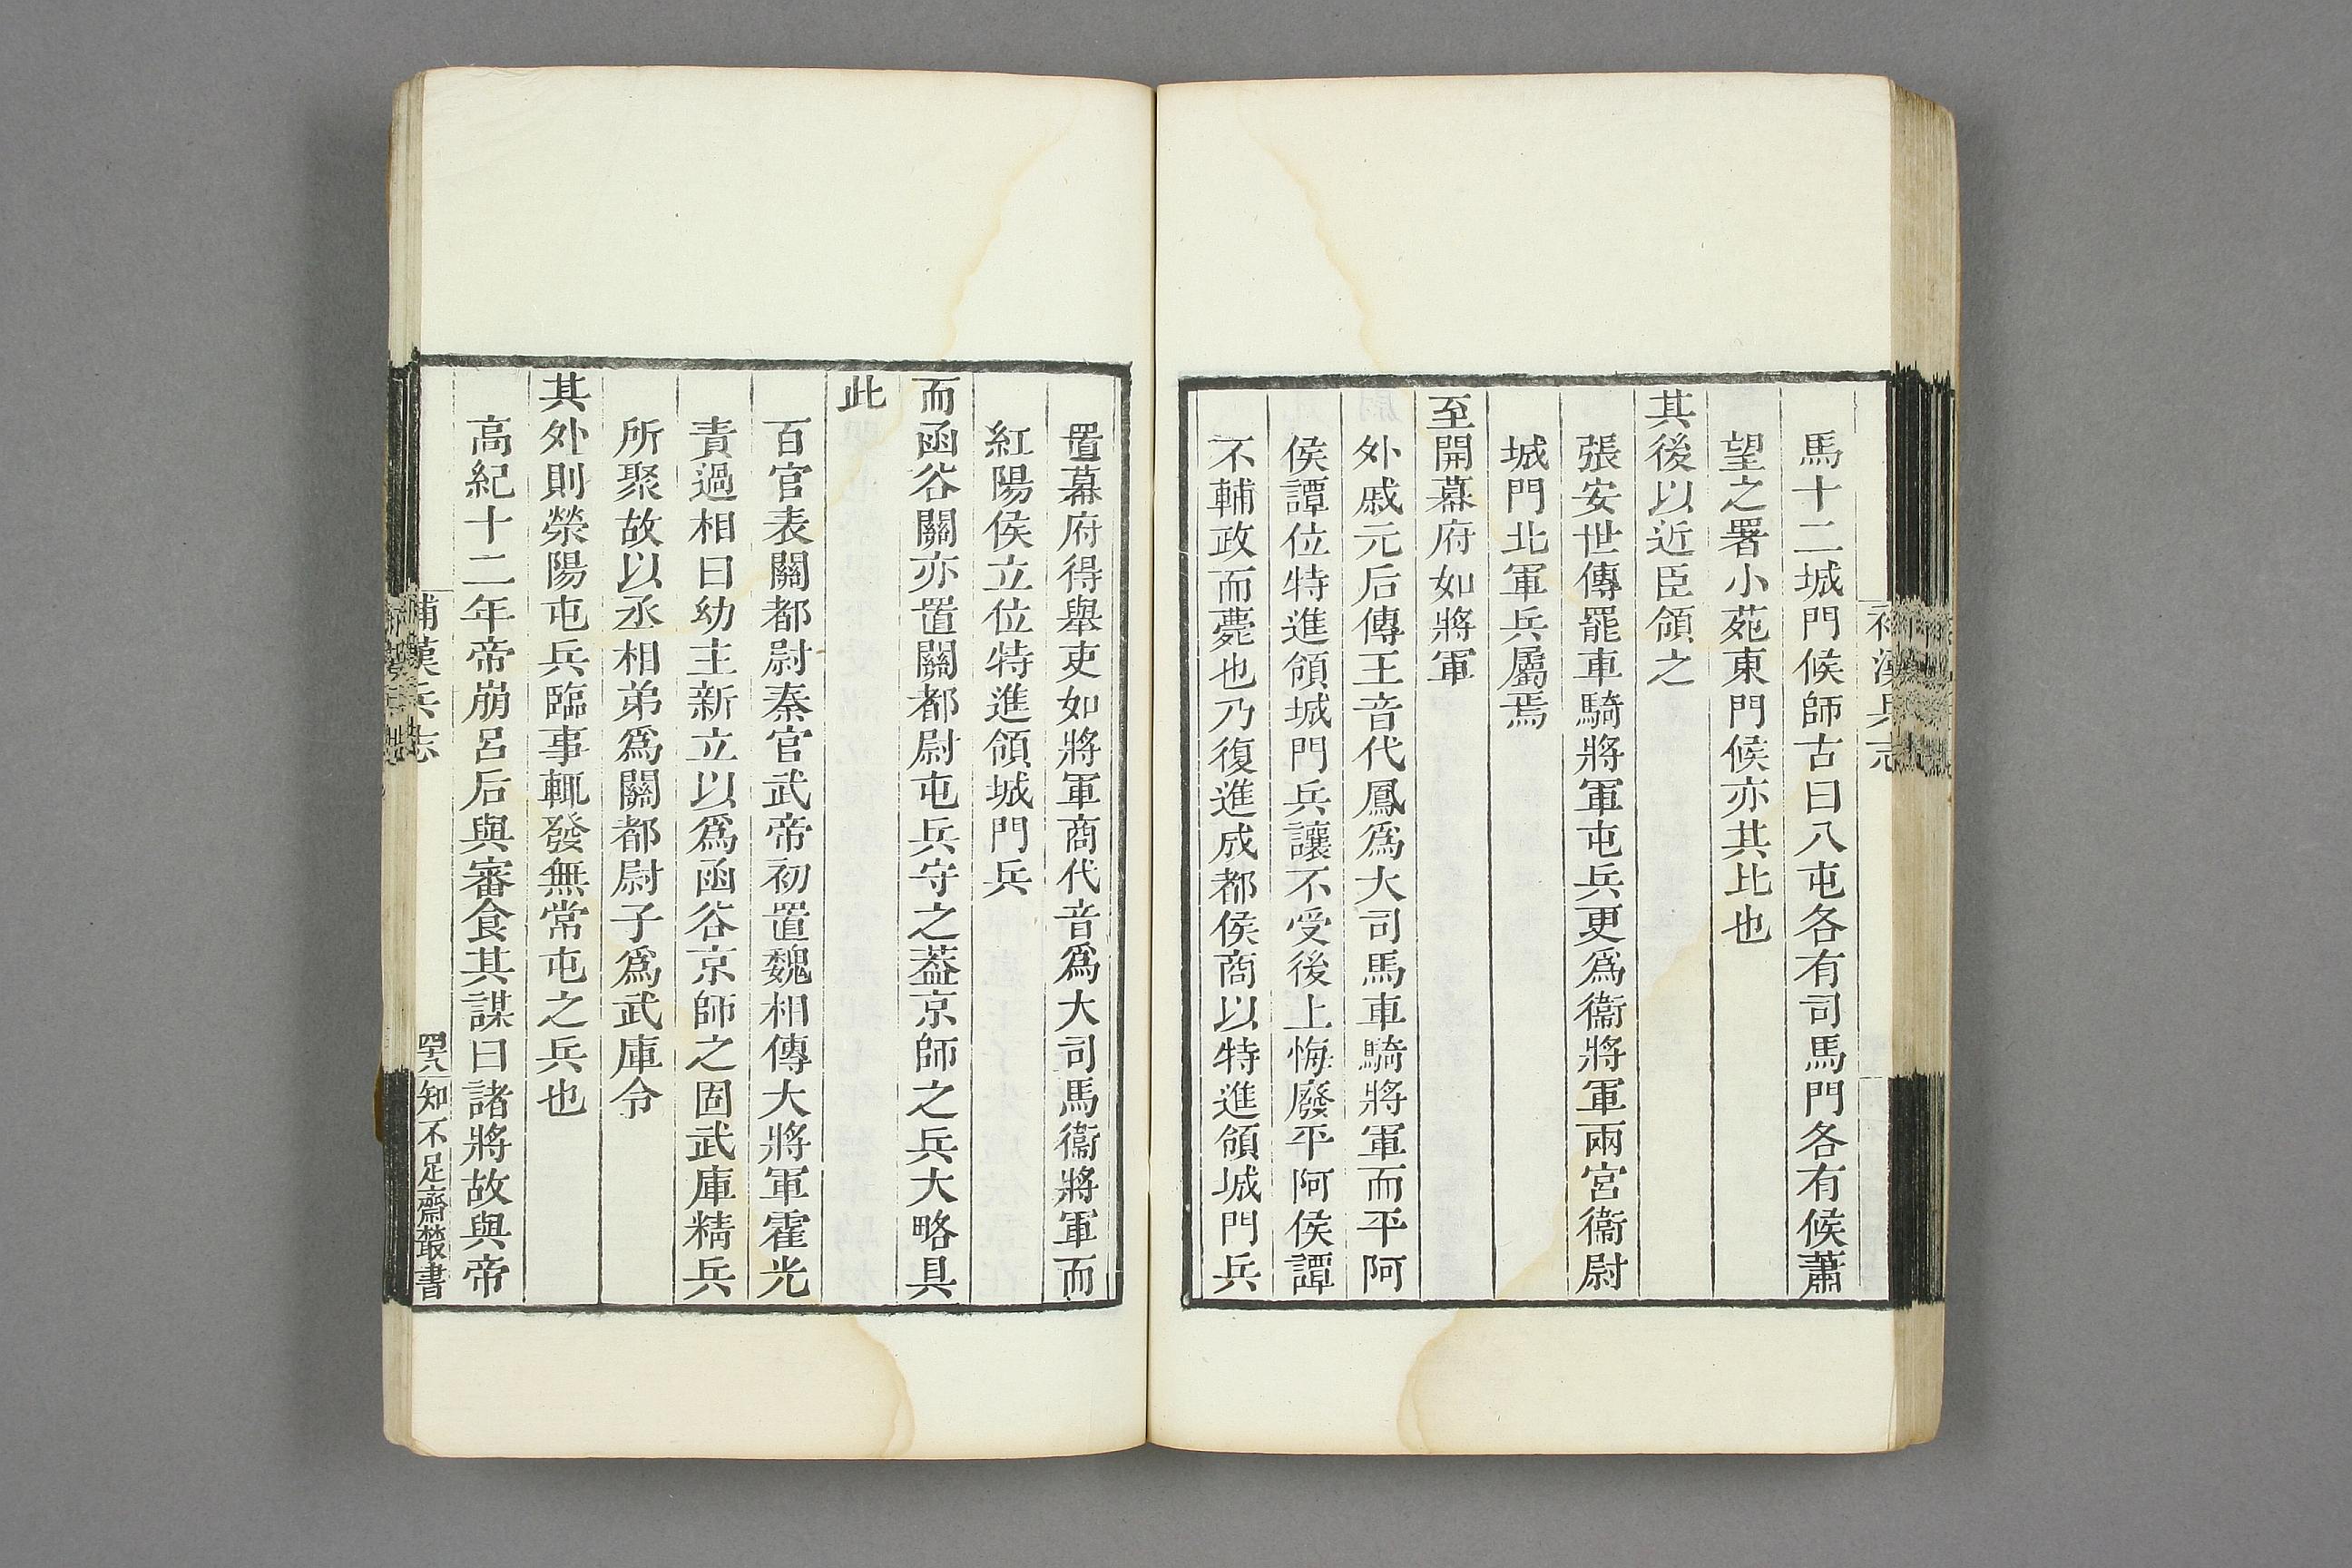 馬十二城門候師古曰八屯各有司馬門各有候蕭
望之署小苑東門候亦其比也
其後以近臣領之
張安世傳罷車騎將軍屯兵更爲衞將軍兩宮衞尉
城門北軍兵屬焉
至開幕府如將軍
外戚元后傳王音代鳳爲大司馬車騎將軍而平阿
侯譚位特進領城門兵讓不受後上悔廢平阿侯譚
不輔政而薨也乃復進成都侯商以特進領城門兵
置幕府得舉吏如將軍商代音爲大司馬衞將軍而
紅陽侯立位特進領城門兵
而函谷關亦置關都尉屯兵守之葢京師之兵大略具
此
百官表關都尉秦官武帝初置魏相傳大將軍霍光
責過相曰幼主新立以爲函谷京師之固武庫精兵
所聚故以丞相弟爲關都尉子爲武庫令
其外則滎陽屯兵臨事輒發無常屯之兵也
高紀十二年帝崩呂后與審食其謀曰諸將故與帝
補漢兵志
四八
知不足齋叢書